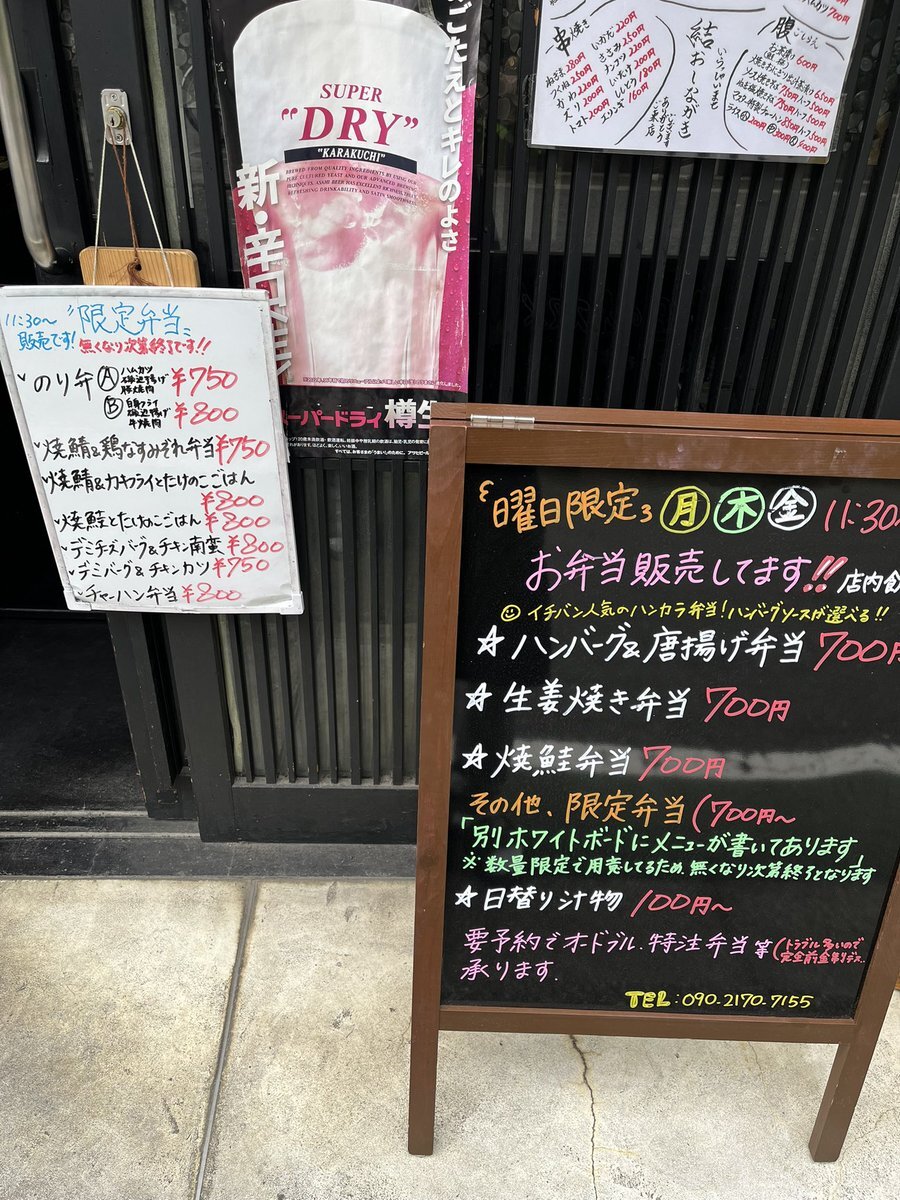 11:30〜
販売です!
"限定弁当"
無くなり次第終了です!!
のり弁 Ⓐ ハムカツ
磯辺揚げ
豚焼肉
¥750
Ⓑ 白身フライ
磯辺揚げ
牛焼肉
¥800
焼鯖&鶏なすみぞれ弁当 ¥750
焼鯖&カキフライとたけのこごはん
¥800
焼鮭とたけのこごはん ¥800
デミチーズバーグ&チキン南蛮 ¥800
デミバーグ&チキンカツ ¥750
チャーハン弁当 ¥800
SUPER
"DRY"
"KARAKUCHI"
BREWED FROM QUALITY INGREDIENTS BY USING OUR
PURE CULTURED YEAST AND OUR ADVANCED BREWING
TECHNIQUES, ASAHI BEER HAS EXCELLENT RICHNESS, TASTE,
REFRESHING DRINKABILITY AND SATIN SMOOTHNESS.
ごたえとキレのよさ
新・辛口
ーパードライ 樽生
串焼き
つくね 250
かわ 220
トマト 200
いかだ 220円
ささみ 250
ナンコツ 220
しいたけ 200
ししとう 180
エリンギ 160円
結
おしながき
いらっしゃいませ
ご来店
ありがとう
腹ごしらえ
600円
曜日限定 月 木 金 11:30〜
お弁当販売してます!! 店内飲
イチバン人気のハンカラ弁当!ハンバーグソースが選べる!!
☆ ハンバーグ&唐揚げ弁当 700円
☆ 生姜焼き弁当 700円
☆ 焼鮭弁当 700円
その他、限定弁当(700円〜
「別ホワイトボードにメニューが書いてあります」
※数量限定で用意してるため、無くなり次第終了となります
☆日替り汁物 100円〜
要予約でオードブル、特注弁当等(トラブル多いので
完全前金制です
承ります。
TEL:090-2170-7155